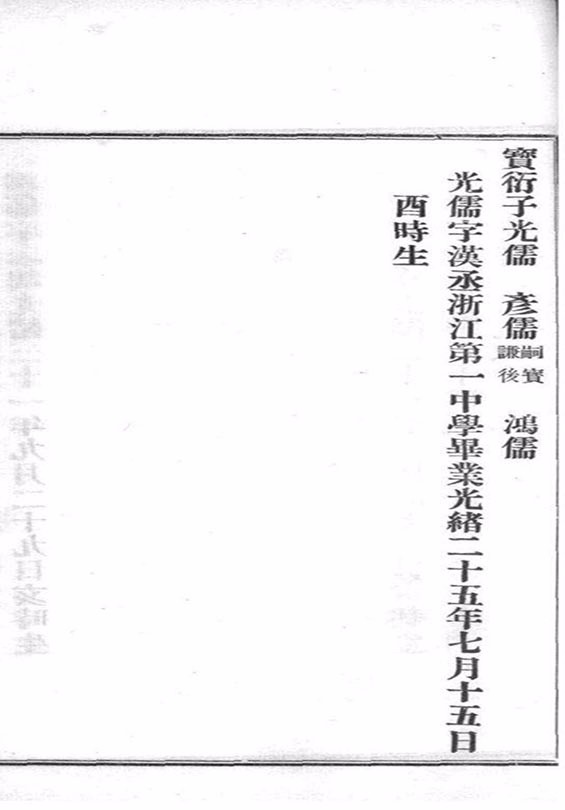 寶衍子光儒　彥儒嗣寶謙後　鴻儒
光儒字漢丞浙江第一中學畢業光緒二十五年七月十五日
酉時生